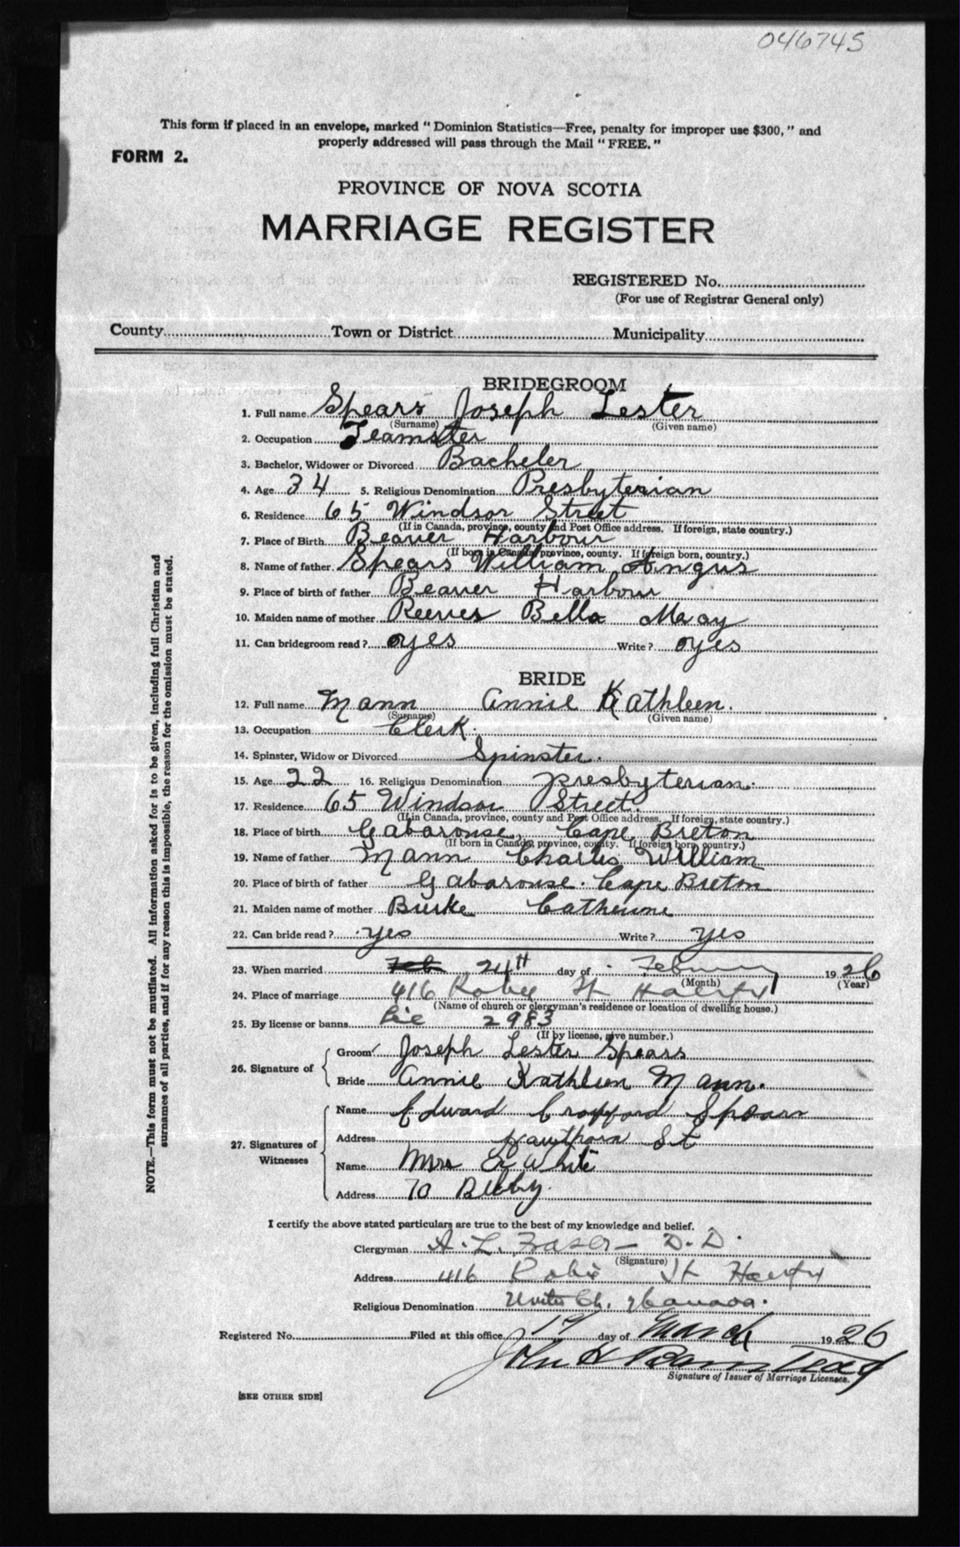 046745
This form if placed in an envelope, marked "Dominion Statistics—Free, penalty for improper use $300," and
properly addressed will pass through the Mail "FREE."
FORM 2.
PROVINCE OF NOVA SCOTIA
MARRIAGE REGISTER
REGISTERED No.
(For use of Registrar General only)
County Town or District Municipality
BRIDEGROOM
1. Full name Spears Joseph Lester
(Surname) (Given name)
2. Occupation Teamster
3. Bachelor, Widower or Divorced Bacheler
4. Age 34 5. Religious Denomination Presbyterian
6. Residence 65 Windsor Street
(If in Canada, province, county and Post Office address. If foreign, state country.)
7. Place of Birth Beaver Harbour
(If born in Canada, province, county. If foreign born, country.)
8. Name of father Spears William Angus
9. Place of birth of father Beaver Harbour
10. Maiden name of mother Reeves Bella May
11. Can bridegroom read? yes Write? yes
BRIDE
12. Full name Mann Annie Kathleen.
(Surname) (Given name)
13. Occupation Clerk.
14. Spinster, Widow or Divorced Spinster.
15. Age 22 16. Religious Denomination presbyterian.
17. Residence 65 Windsor Street.
(If in Canada, province, county and Post Office address. If foreign, state country.)
18. Place of birth Gabarouse, Cape Breton
(If born in Canada, province, county. If foreign born, country.)
19. Name of father Mann Charles William
20. Place of birth of father Gabarouse. Cape Breton
21. Maiden name of mother Burke Catherine
22. Can bride read? yes Write? yes
23. When married Feb 24th day of February 1926
(Month) (Year)
24. Place of marriage 416 Robie St Halifax
(Name of church or clergyman's residence or location of dwelling house.)
25. By license or banns Lic 2983
(If by license, give number.)
26. Signature of
Groom Joseph Lester Spears
Bride Annie Kathleen Mann.
27. Signatures of Witnesses
Name Edward Spears
Address Hawthorn St
Name Mrs White
Address 70 Bilby.
I certify the above stated particulars are true to the best of my knowledge and belief.
Clergyman A. L. Fraser D.D.
(Signature)
Address 416 Robie St Halifax
Religious Denomination United Ch. Canada.
Registered No. Filed at this office day of March 1926
John H Barnstead
Signature of Issuer of Marriage Licenses.
[SEE OTHER SIDE]
NOTE.—This form must not be mutilated. All information asked for is to be given, including full Christian and
surnames of all parties, and if for any reason this is impossible, the reason for the omission must be stated.